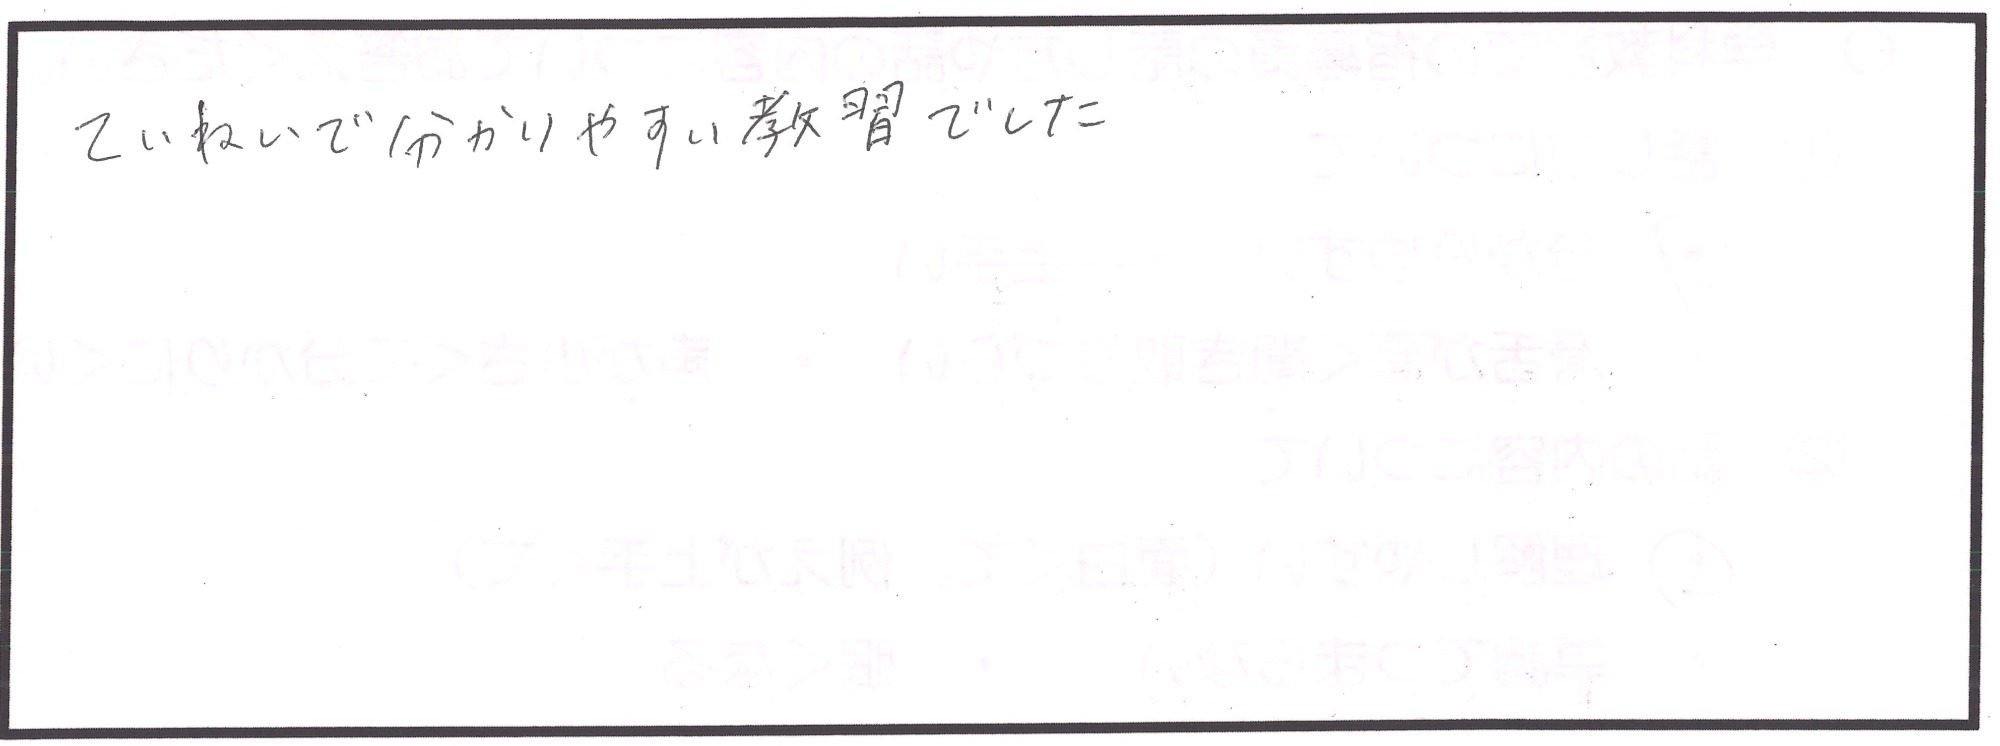 ていねいで分かりやすい教習でした